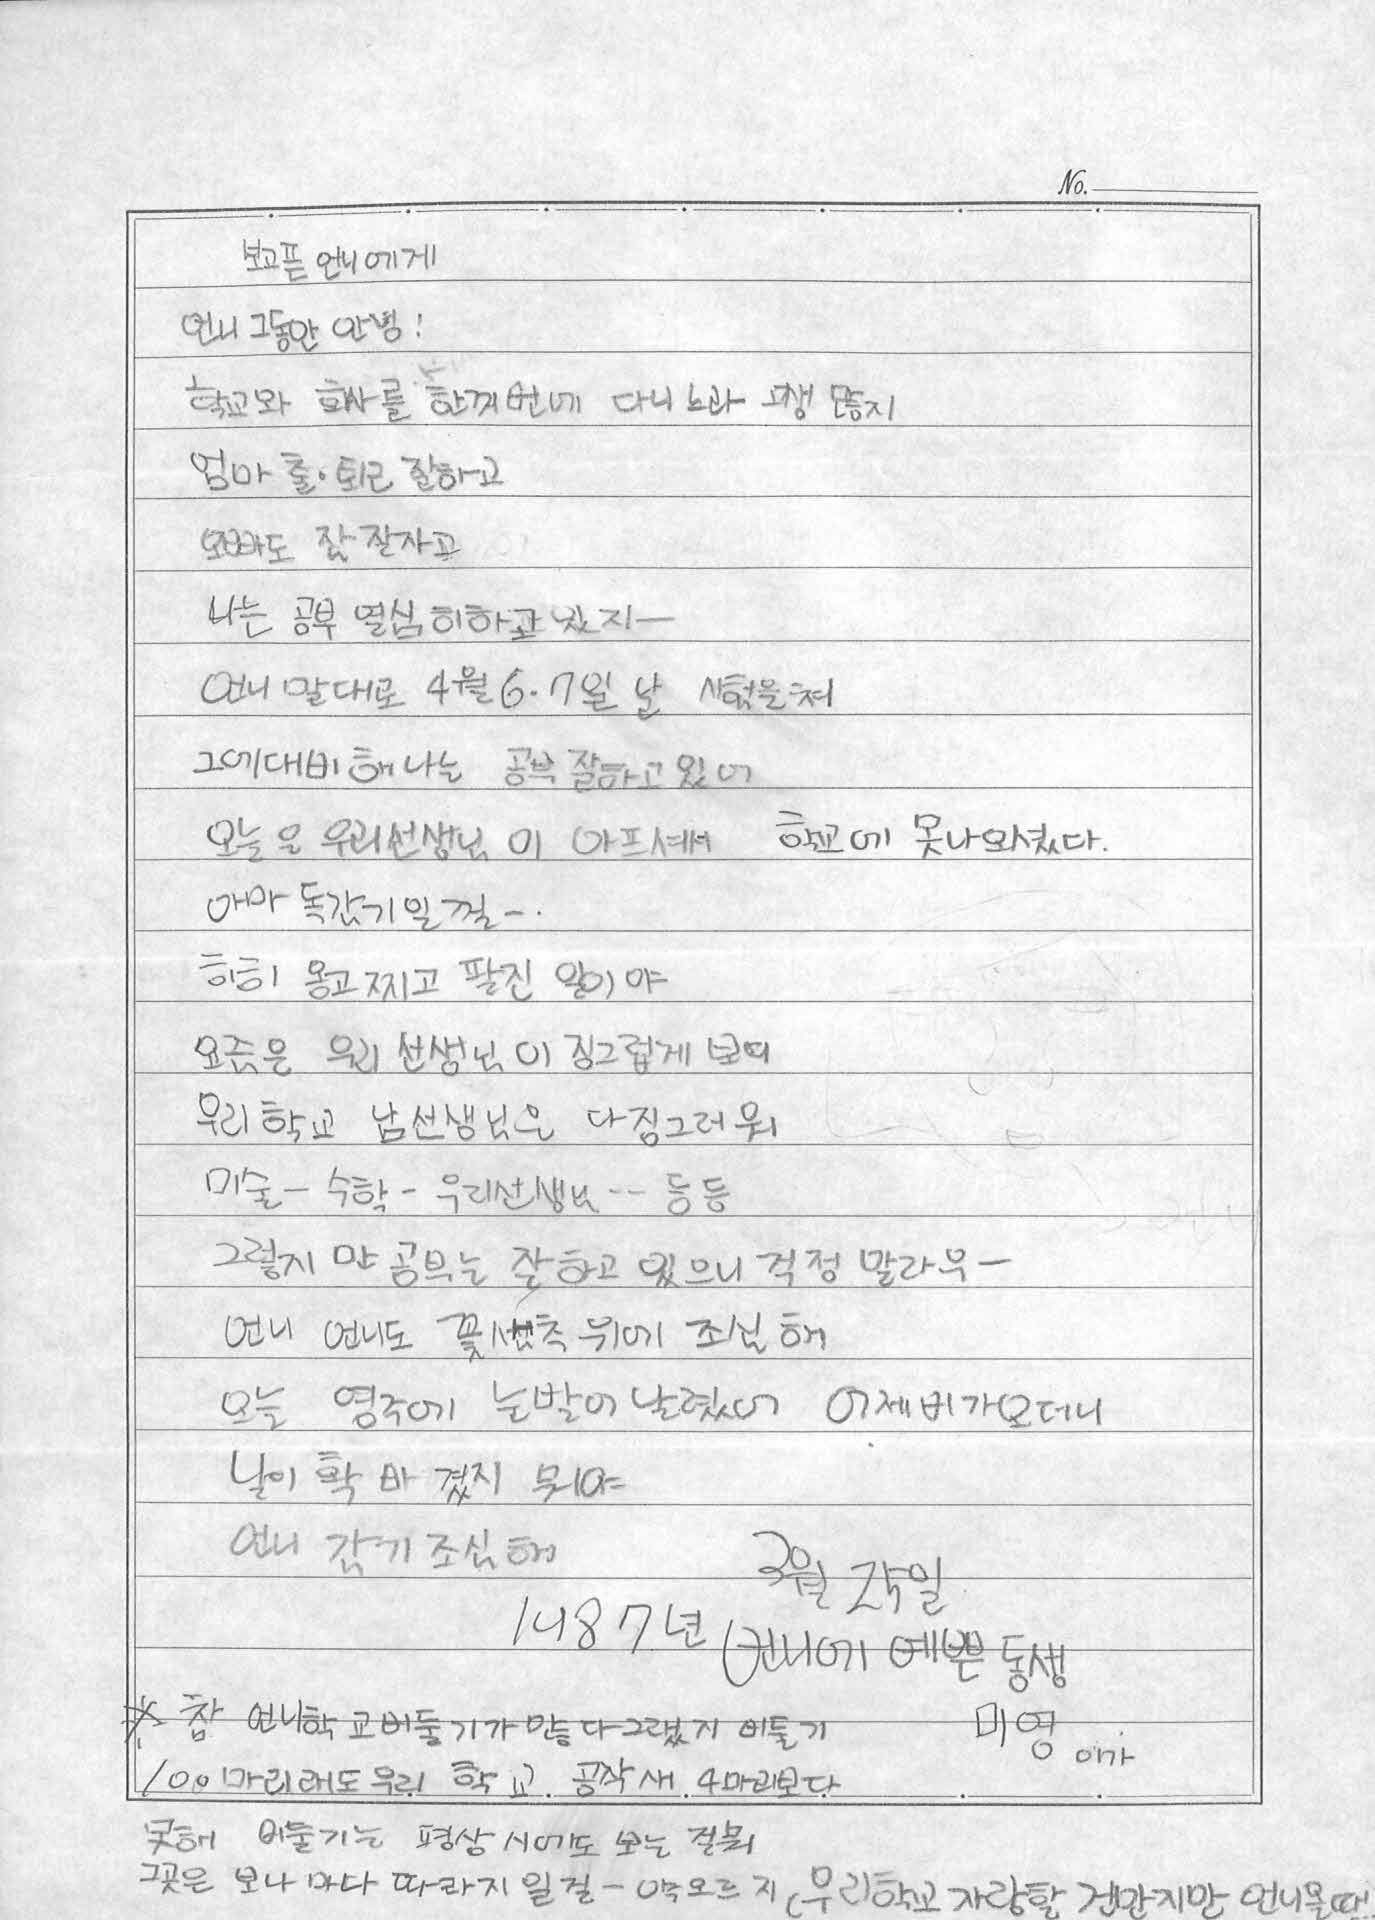 No.
보고픈 언니에게
언니 그동안 안녕!
학교와 회사를 한꺼번에 다니느라 고생 많지
엄마 출·퇴근 잘하고
오빠도 잘 잘자고
나는 공부 열심히하고 있지—
언니 말대로 4월 6.7일 날 시험을 쳐
그에대비해 나는 공부 잘하고 있어
오늘은 우리선생님이 아프셔서 학교에 못나오셨다.
아마 독감기일껄—.
히히 옹고찌고 팔진 일이야
요즘은 우리 선생님이 징그럽게 보여
우리학교 남선생님은 다 징그러워
미술— 수학 — 우리선생님 -- 등등
그렇지만 공부는 잘하고 있으니 걱정 말라우—
언니 언니도 꽃샘추위에 조심해
오늘 영주에 눈발이 날렸어 어제 비가오더니
날이 확 바꼈지 뭐야
언니 감기 조심해
3월 25일
1987년 언니에 예쁜 동생
미영 이가
※ 참 언니학교 비둘기가 많다그랬지 비둘기
100마리래도 우리 학교 공작새 4마리보다
못해 비둘기는 평상시에도 보는 걸 뭐
그곳은 보나마다 따라지 일걸— 약오르지 (우리학교 자랑할 겐만지만 언니올때!